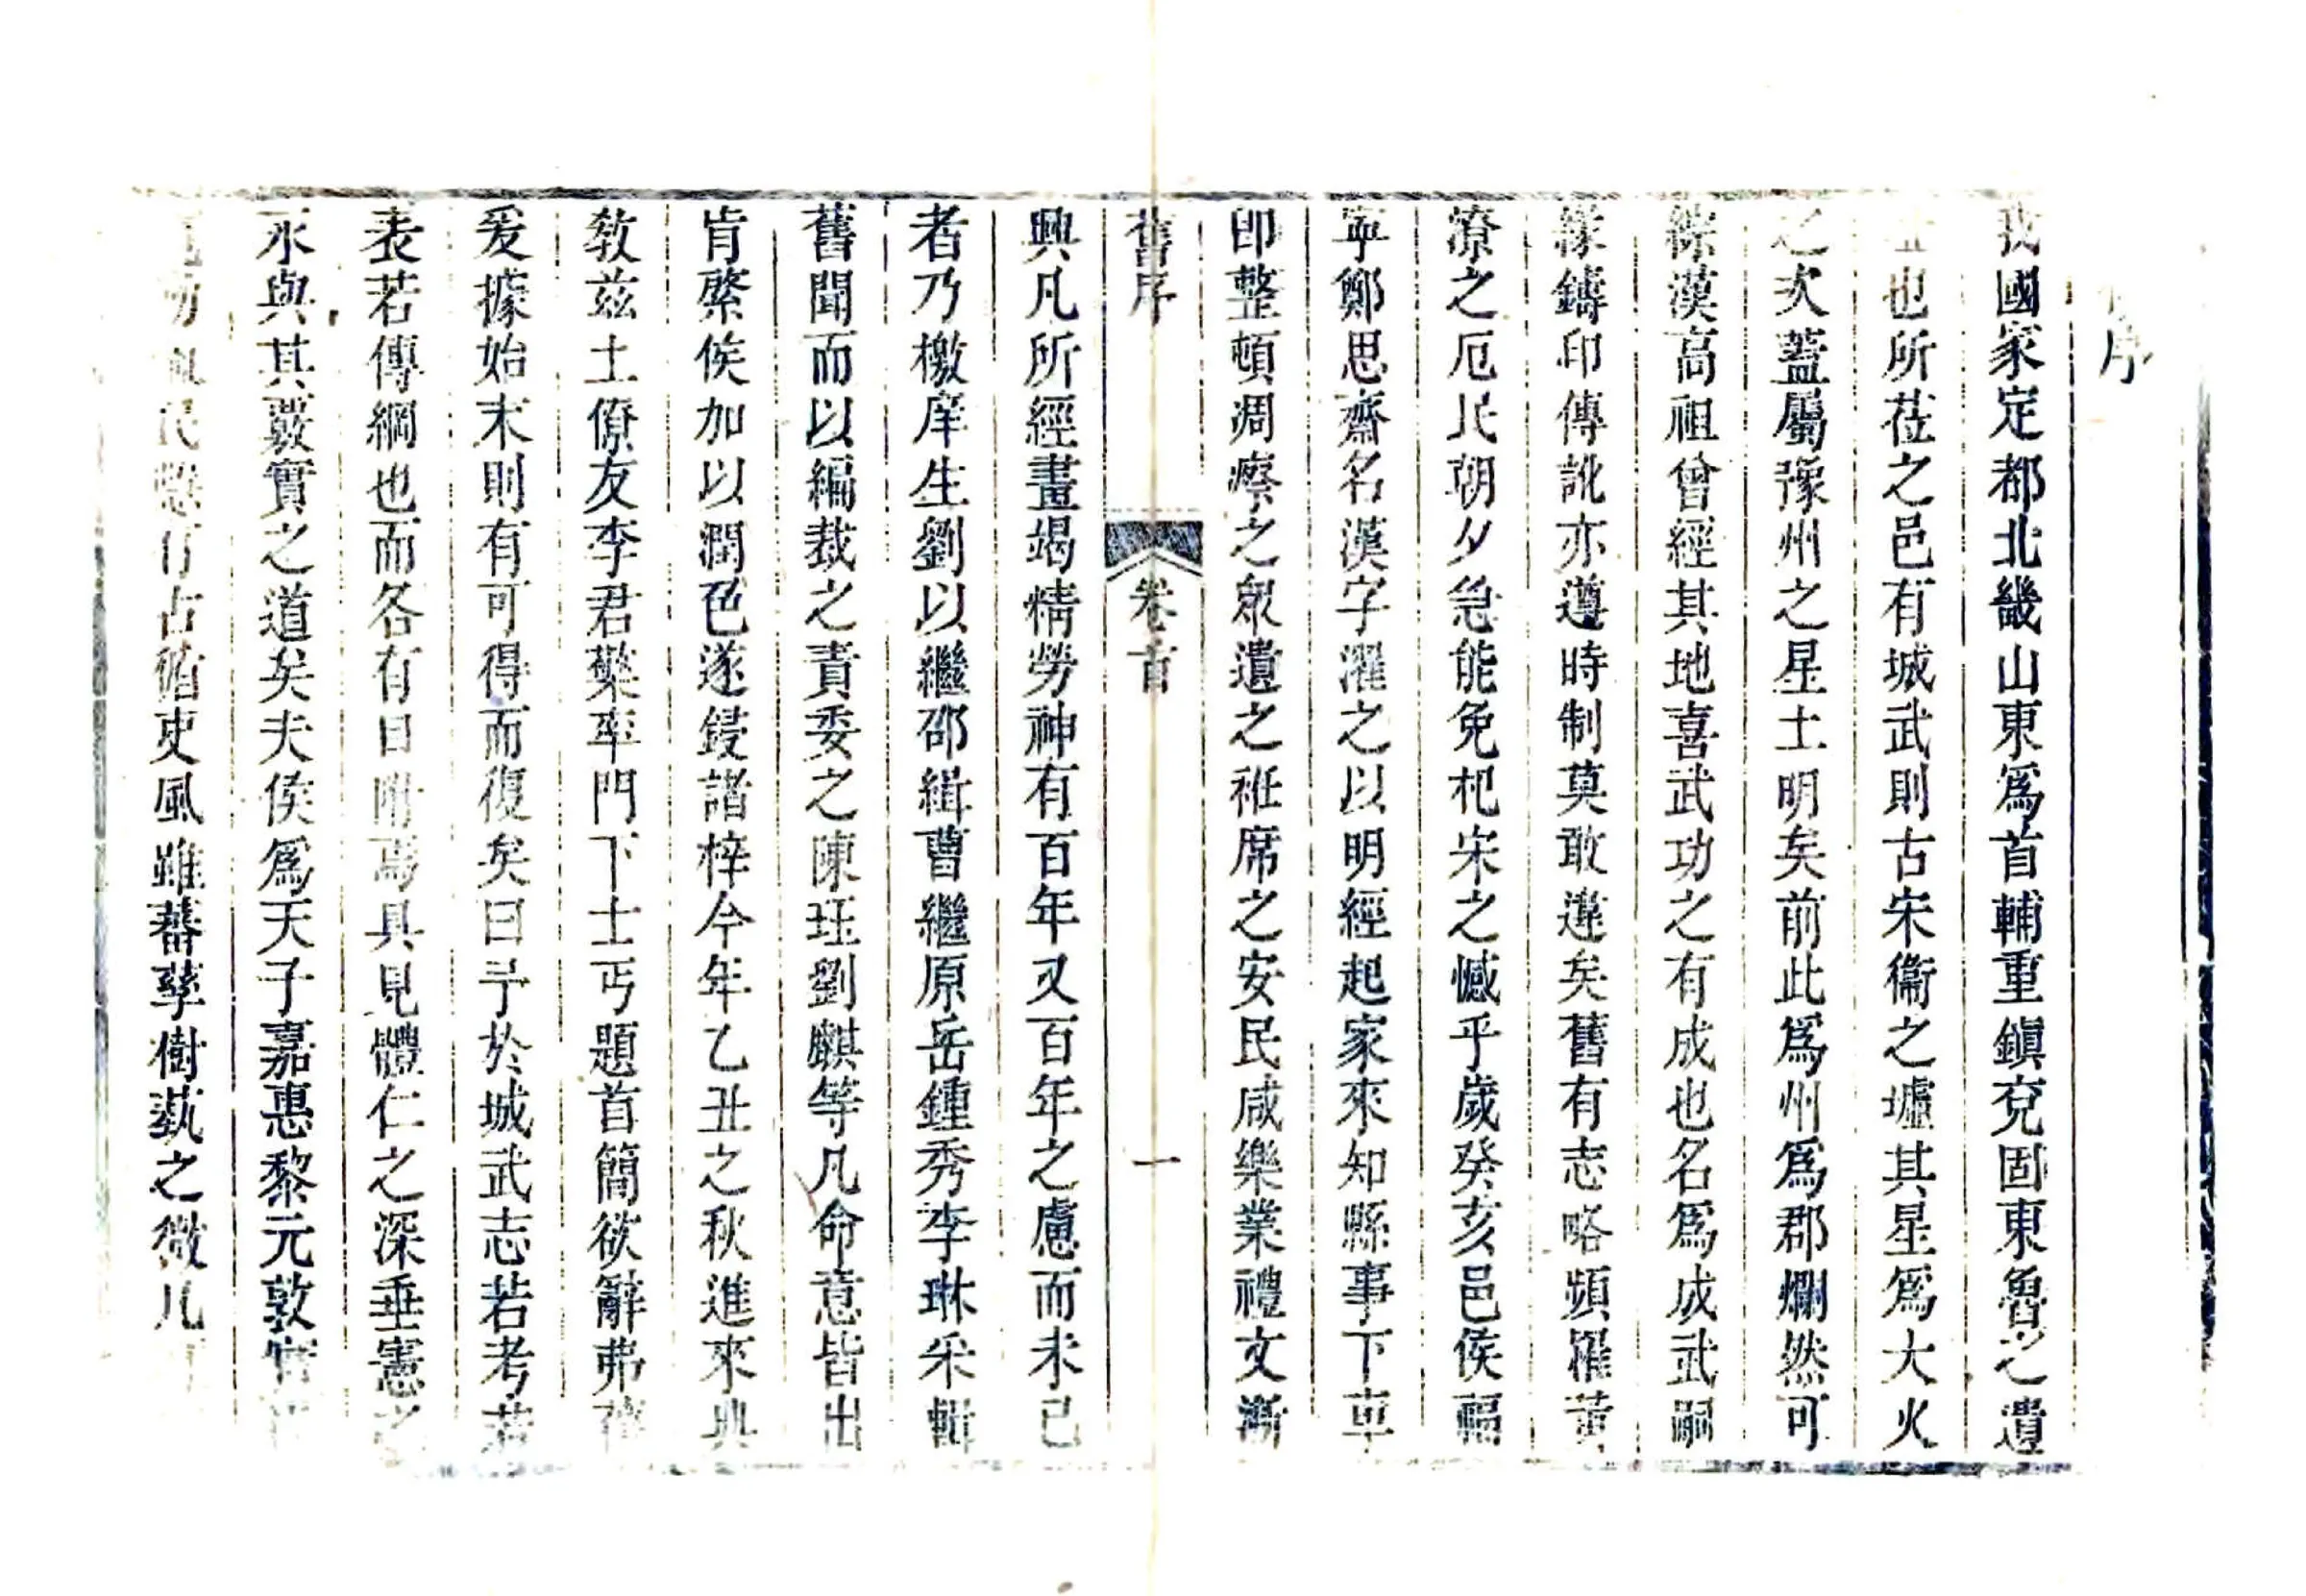 序
我國家定都北畿山東爲首輔重鎭兗固東魯之遺
也所莅之邑有城武則古宋衞之墟其星爲大火
之次蓋屬豫州之星土明矣前此爲州爲郡爛然可
綜漢高祖曾經其地喜武功之有成也名爲成武嗣
緣鑄印傳訛亦遵時制莫敢違矣舊有志略頻罹黃
潦之厄民朝夕急能免杞宋之憾乎歲癸亥邑侯福
寧鄭思齋名漢字濯之以明經起家來知縣事下車
卽整頓凋瘵之眾遺之袵席之安民咸樂業禮文漸
舊序 卷首 一
興凡所經畫竭精勞神有百年又百年之慮而未已
者乃檄庠生劉以繼邵緝曹繼原岳鍾秀李琳采輯
舊聞而以編裁之責委之陳珏劉麒等凡命意皆出
肯綮侯加以潤色遂鋟諸梓今年乙丑之秋進來典
敎兹土僚友李君櫱率門下士丐題首簡欲辭弗獲
爰據始末則有可得而復矣曰予於城武志若考若
表若傳綱也而各有目附焉具見體仁之深垂憲之
永與其覈實之道矣夫侯爲天子嘉惠黎元敦
民 占循吏風雖蕃孳樹蓺之微凡